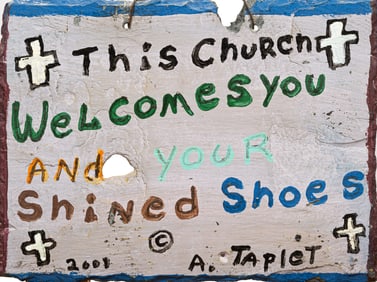 This Church
Welcomes you
And your
Shined Shoes
©
2001 A. Taplet